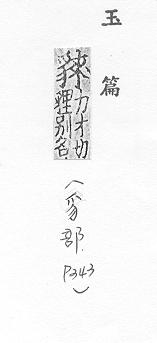 玉篇
𧳟力才切
貍別名
(豸部.P343)